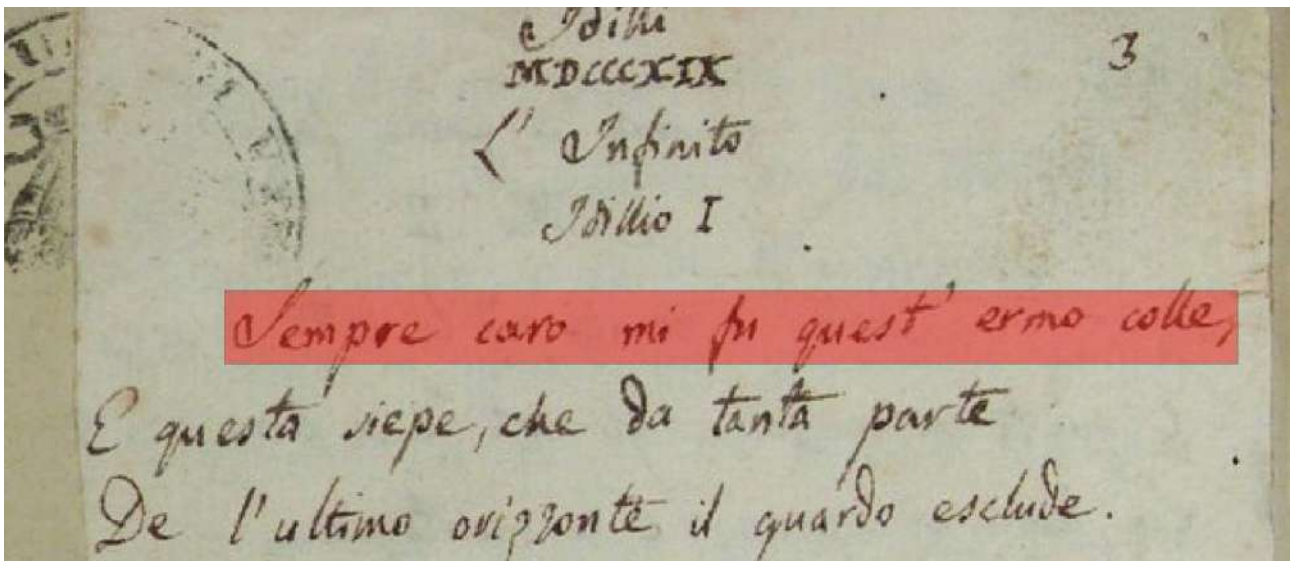 Idilli
MDCCCXIX
3
L' Infinito
Idillio I
Sempre caro mi fu quest' ermo colle,
E questa siepe, che da tanta parte
De l'ultimo orizzonte il guardo esclude.